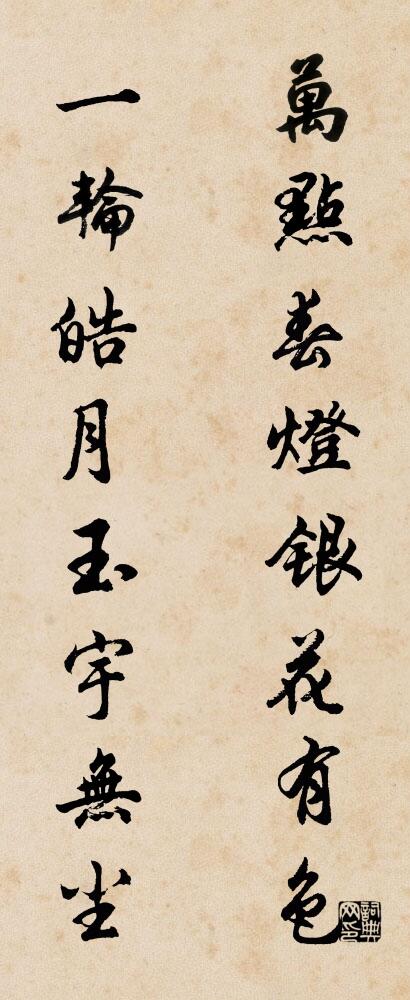 萬點春燈銀花有色
一輪皓月玉宇無尘
詞典网印